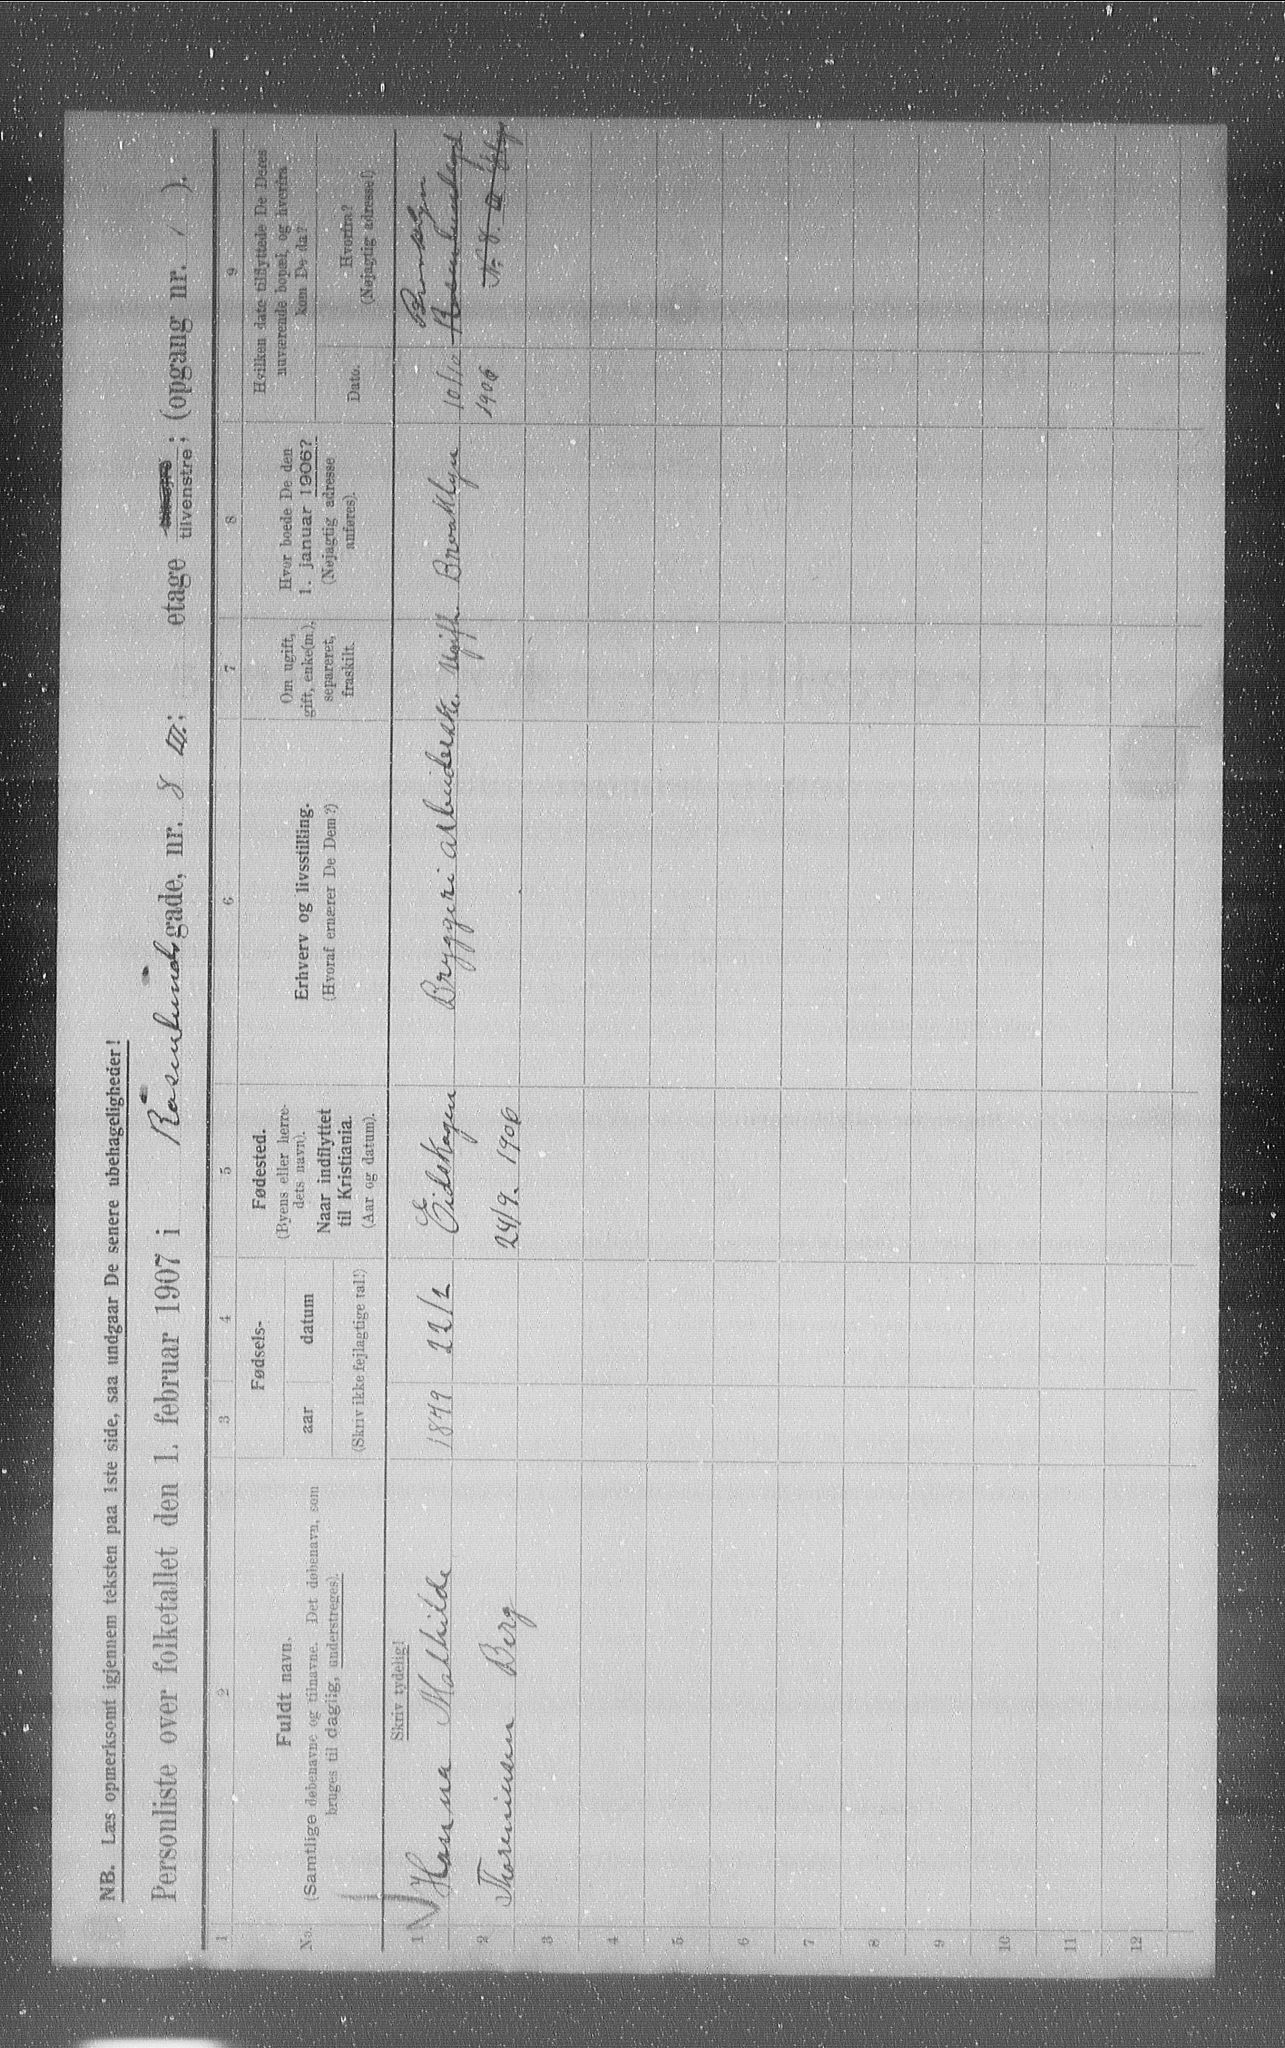 NB. Læs opmerksomt igjennem teksten paa 1ste side, saa undgaar De senere ubehageligheder!
Personliste over folketallet den 1. februar 1907 i Rosenlunds gade, nr. 8 III; etage tilvenstre; (opgang nr. 1 ).
1 2 3 4 5 6 7 8 9
No.
Fuldt navn.
(Samtlige døbenavne og tilnavne. Det døbenavn, som
bruges til daglig, understreges).
Fødsels-
aar datum
(Skriv ikke fejlagtige tal!)
Fødested.
(Byens eller herre-
dets navn).
Naar indflyttet
til Kristiania.
(Aar og datum).
Erhverv og livsstilling.
(Hvoraf ernærer De Dem?)
Om ugift,
gift, enke(m.),
separeret,
fraskilt.
Hvor boede De den
1. januar 1906?
(Nøjagtig adresse
anføres).
Hvilken dato tilflyttede De Deres
nuværende bopæl, og hvorfra
kom De da?
Dato.
Hvorfra?
(Nøjagtig adresse!)
Skriv tydelig!
1 Hanna Mathilde 1849 22/2 Eidskogen Bryggeri arbeiderske. Ugift. Brooklyn 10/10
2 Thoreniusen Berg 24/9. 1906 1906 No 8. III
3
4
5
6
7
8
9
10
11
12